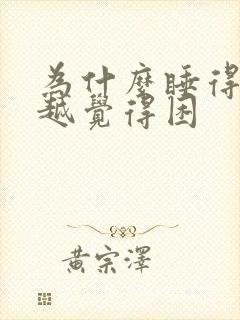 為什麼睡得
越覺得困
黃宗澤